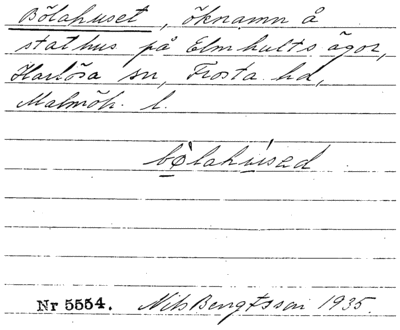 Bölahuset, öknamn å
stathus på Elmhults ägor,
Harlösa sn, Frosta hd,
Malmöh. l.
bǫ̀lahùsəd
Nr 5554. Nils Bengtsson 1935.